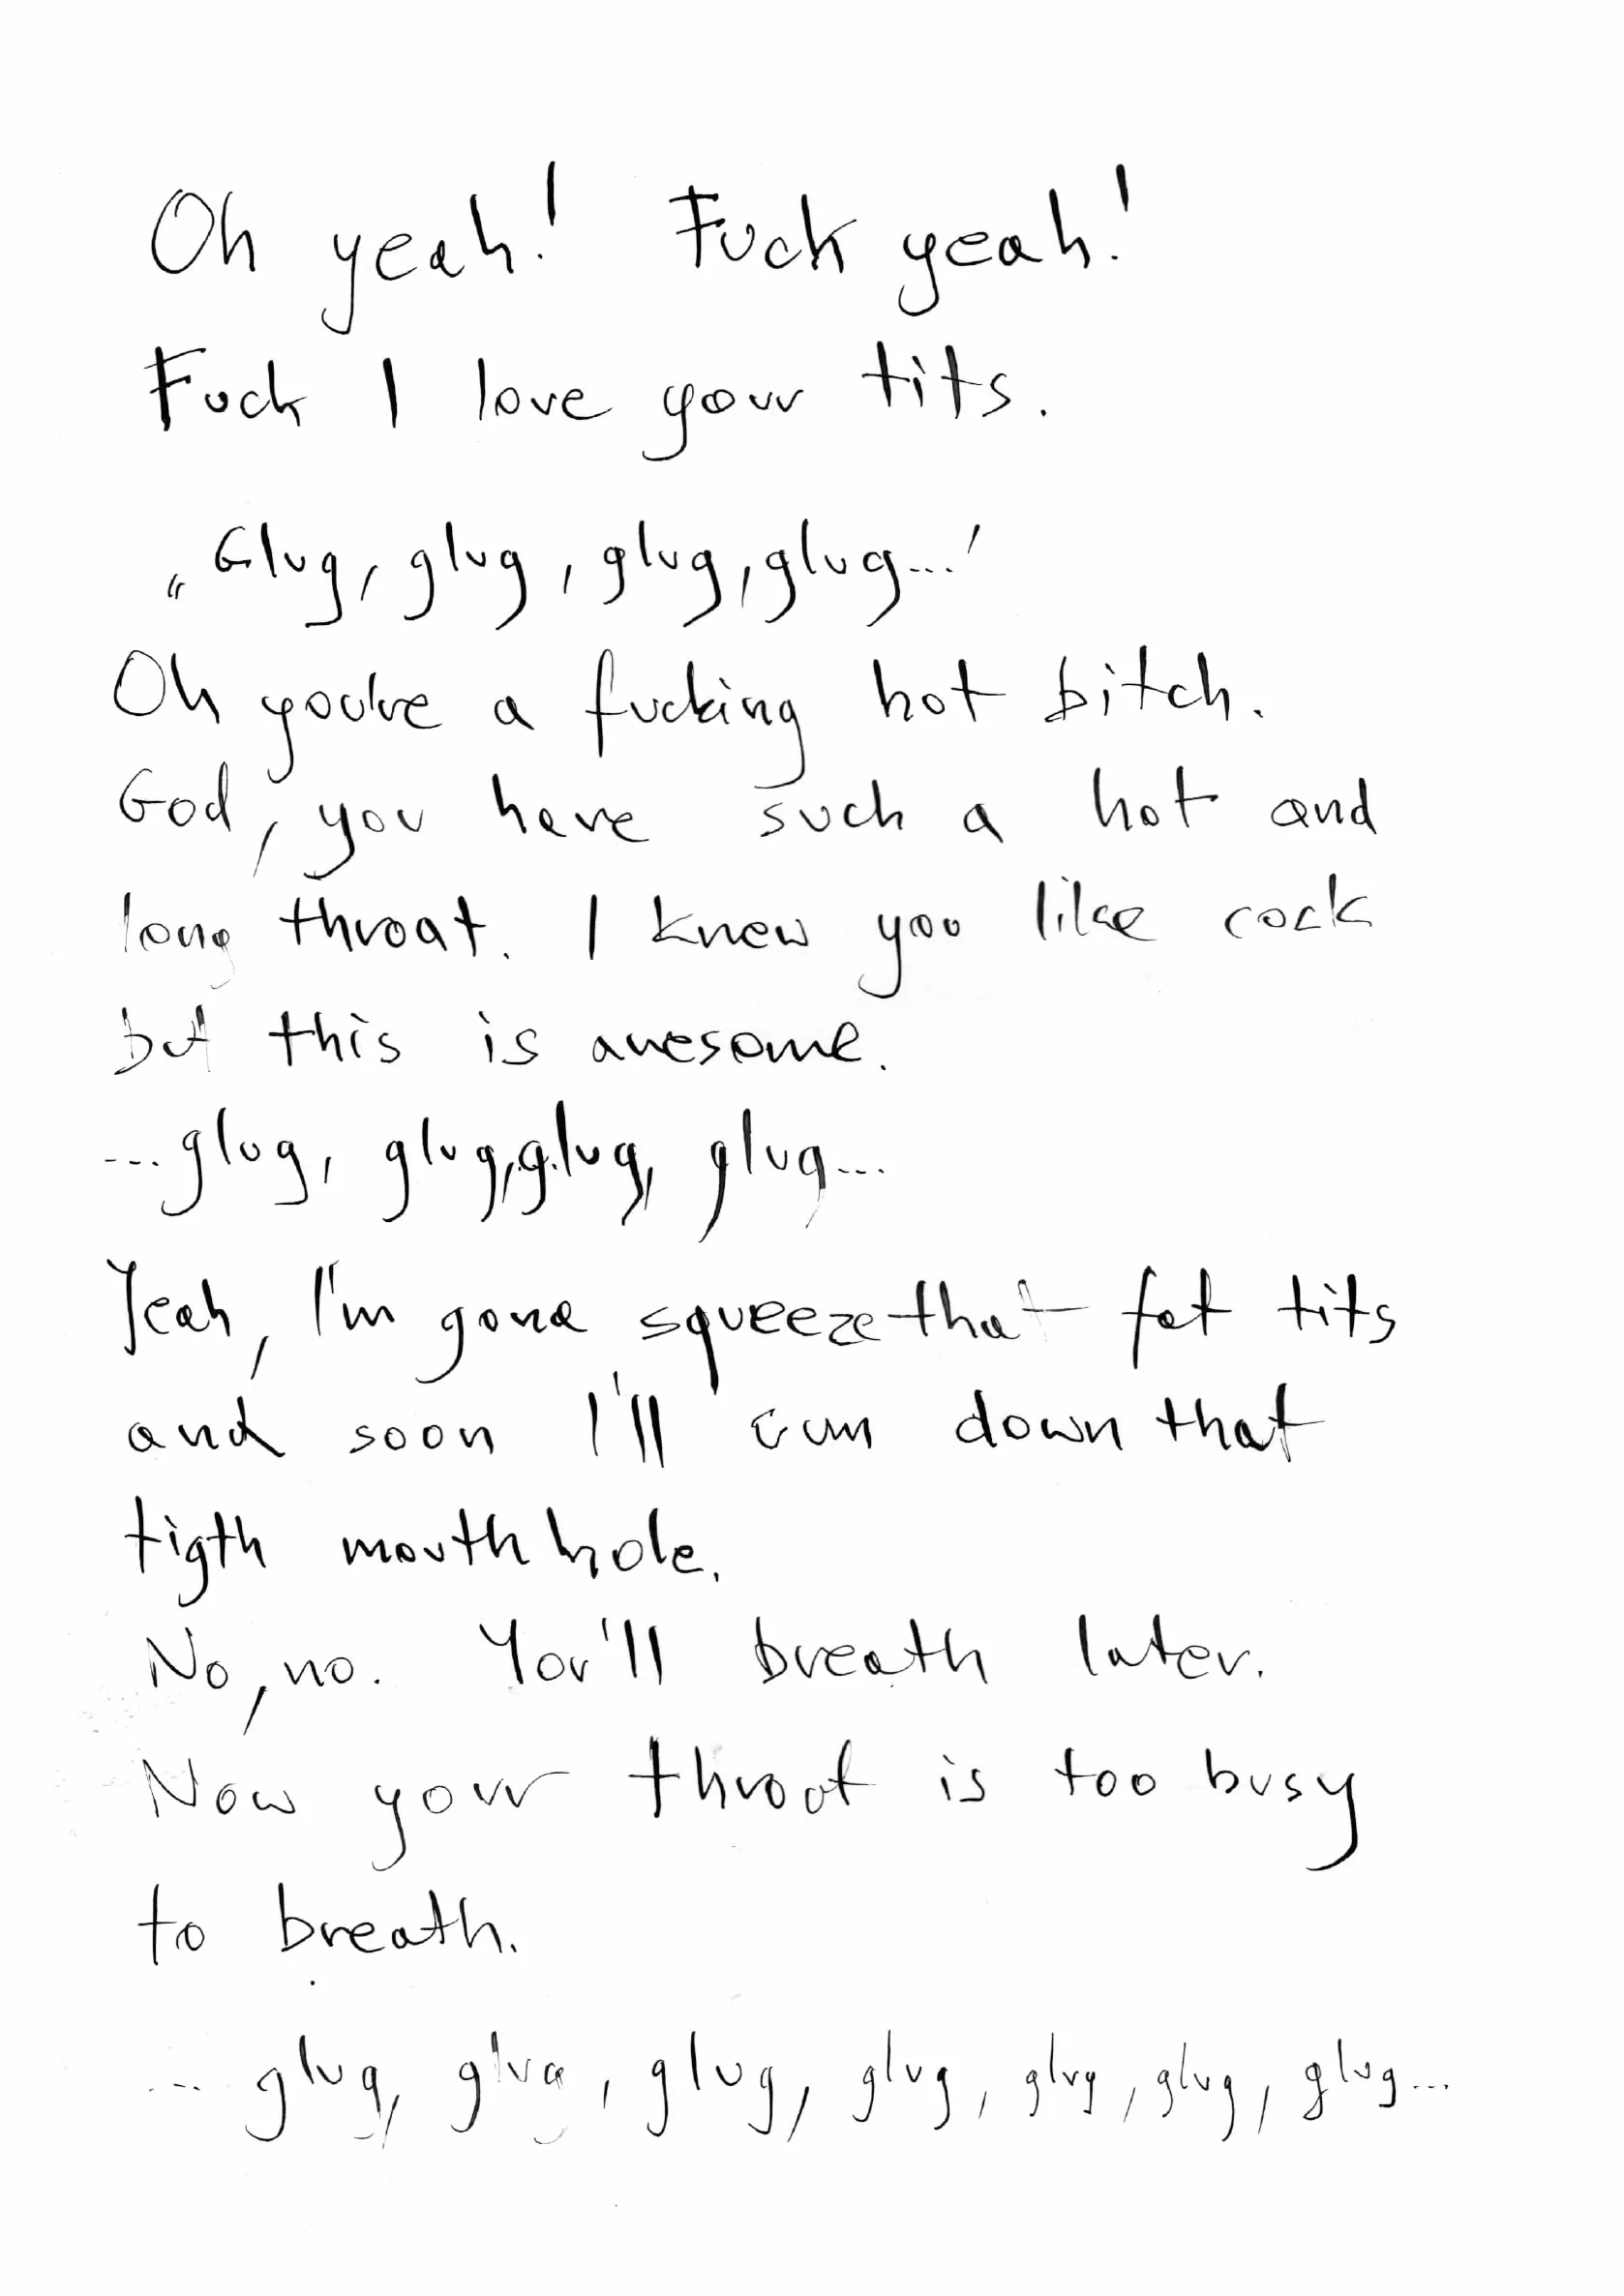 Oh yeah! Fuck yeah!
Fuck I love your tits.
„Glug, glug, glug, glug...'
Oh you're a fucking hot bitch.
God, you have such a hot and
long throat. I knew you like cock
but this is awesome.
...glug, glug, glug, glug...
Yeah, I'm gona squeeze that fat tits
and soon I'll cum down that
tigth mouth hole.
No, no. You'll breath later.
Now your throat is too busy
to breath.
... glug, glug, glug, glug, glug, glug, glug...